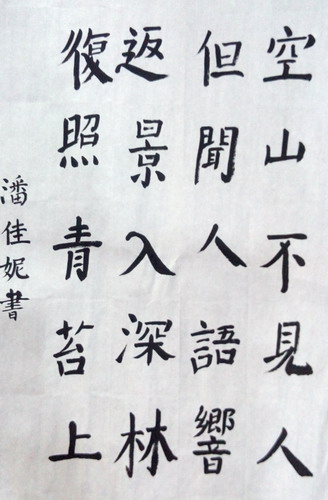 空山不見人
但聞人語響
返景入深林
復照青苔上
潘佳妮書